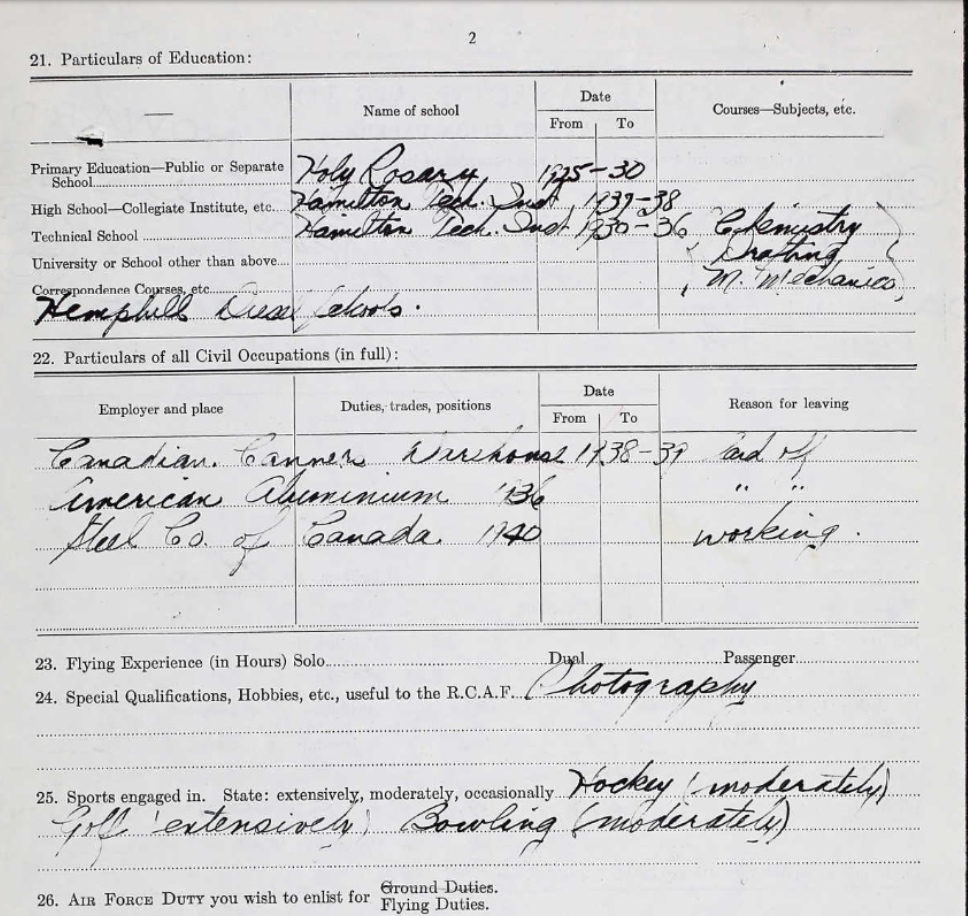 2
21. Particulars of Education:
Name of school Date Courses—Subjects, etc.
From To
Primary Education—Public or Separate
School Holy Rosary 1925-30
High School—Collegiate Institute, etc. Hamilton Tech. Inst. 1937-38
Technical School Hamilton Tech. Inst 1930-36 Chemistry
University or School other than above Drafting
Correspondence Courses, etc. M. Mechanics
Hemphill Diesel Schools.
22. Particulars of all Civil Occupations (in full):
Employer and place Duties, trades, positions Date Reason for leaving
From To
Canadian Canners Warehouse 1938-39 laid off
American Aluminium '36 " "
Steel Co. of Canada 1940 working.
23. Flying Experience (in Hours) Solo Dual Passenger
24. Special Qualifications, Hobbies, etc., useful to the R.C.A.F. Photography
25. Sports engaged in. State: extensively, moderately, occasionally Hockey (moderately)
Golf (extensively) Bowling (moderately)
26. AIR FORCE DUTY you wish to enlist for Ground Duties.
Flying Duties.